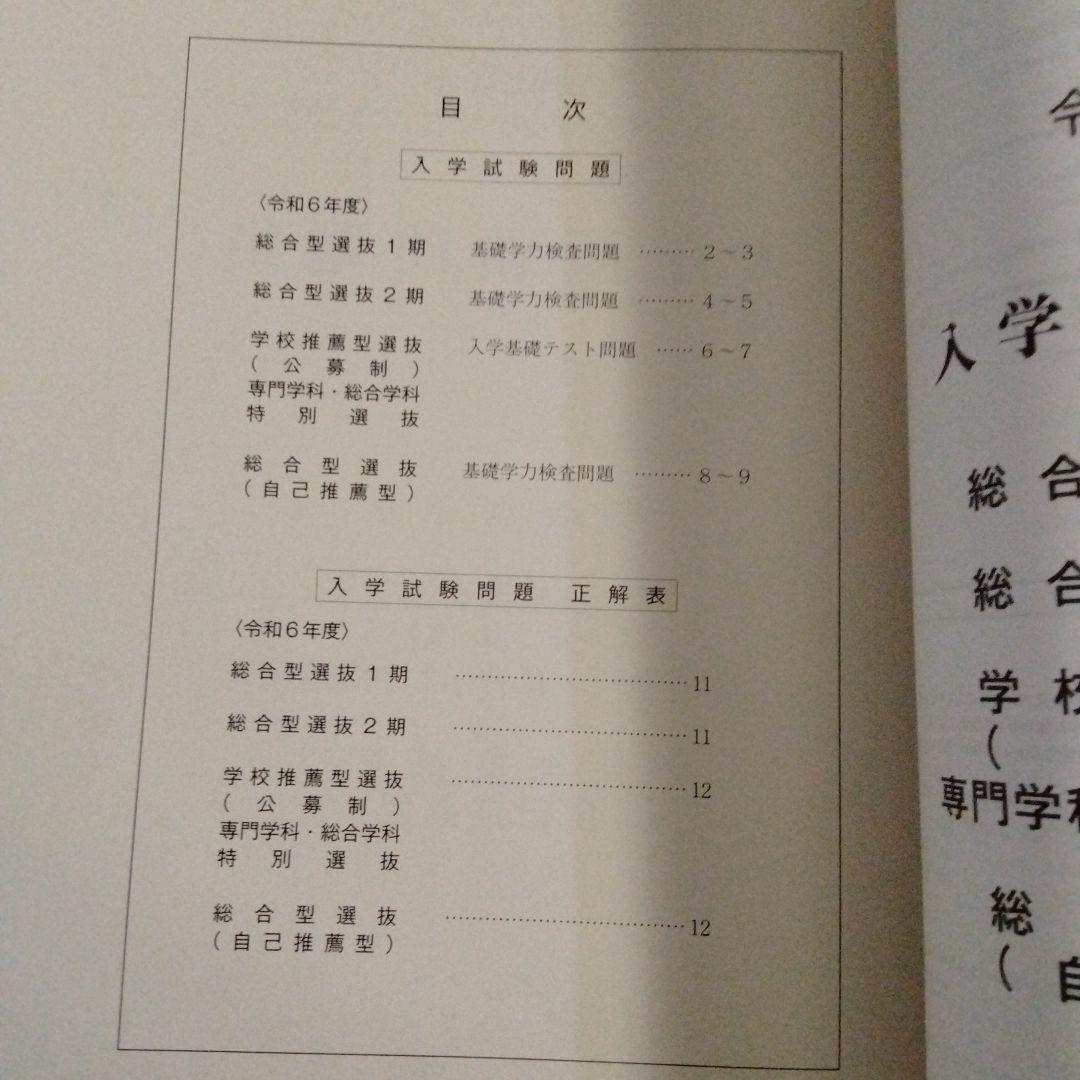 目次
入学試験問題
〈令和6年度〉
総合型選抜1期 基礎学力検査問題 ……… 2~3
総合型選抜2期 基礎学力検査問題 ……… 4~5
学校推薦型選抜 入学基礎テスト問題 …… 6~7
(公募制)
専門学科・総合学科
特別選抜
総合型選抜 基礎学力検査問題 ……… 8~9
(自己推薦型)
入学試験問題 正解表
〈令和6年度〉
総合型選抜1期 ……………………………… 11
総合型選抜2期 ……………………………… 11
学校推薦型選抜 ……………………………… 12
(公募制)
専門学科・総合学科
特別選抜
総合型選抜 ……………………………… 12
(自己推薦型)
入学
総合
総合
学校
(
専門学科
総
(自